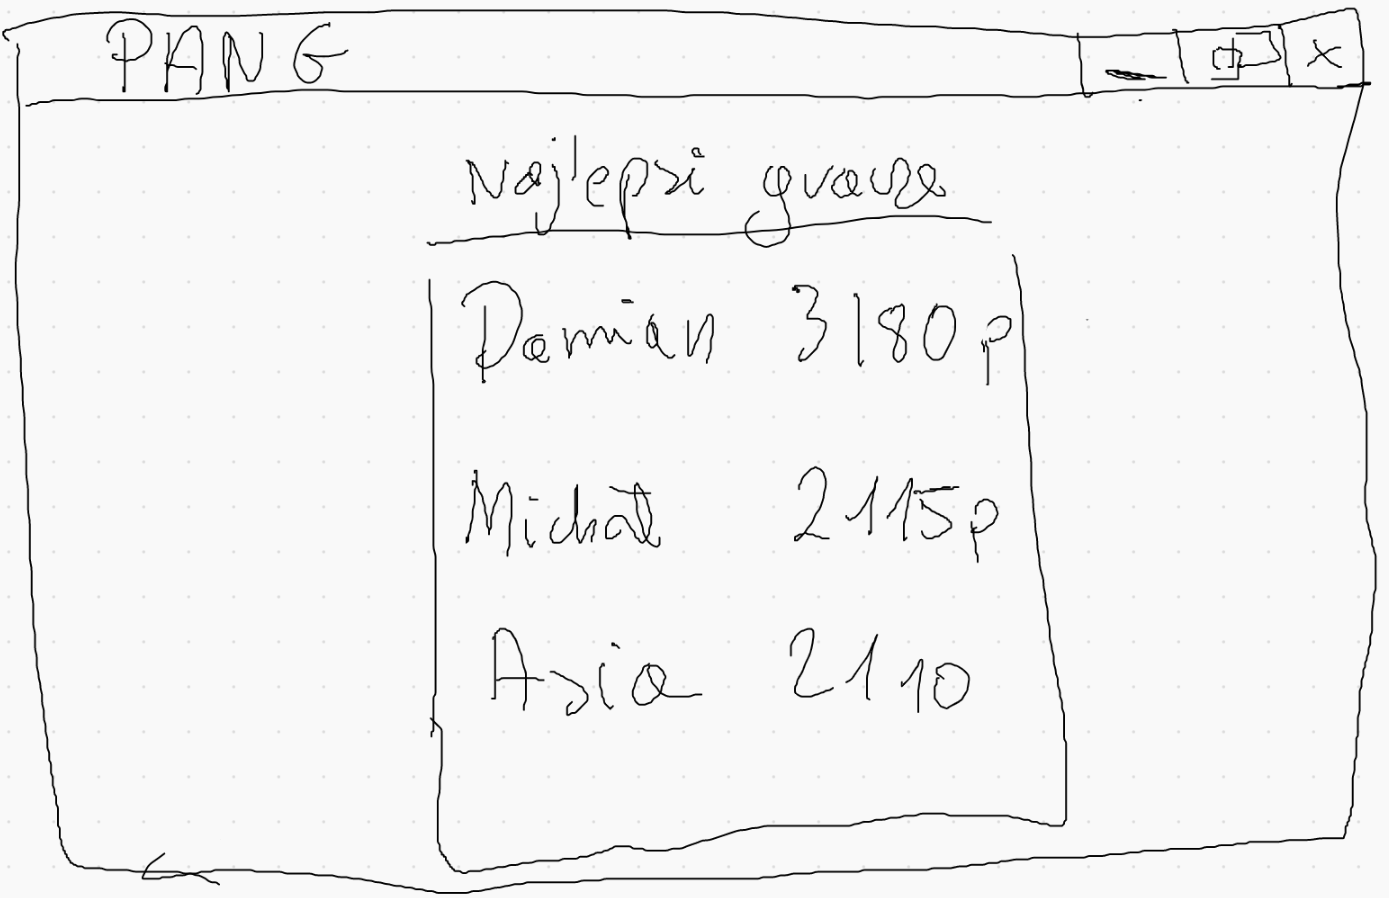 PANG
Najlepsi gracze
Damian 3180p
Michał 2115p
Asia 2110